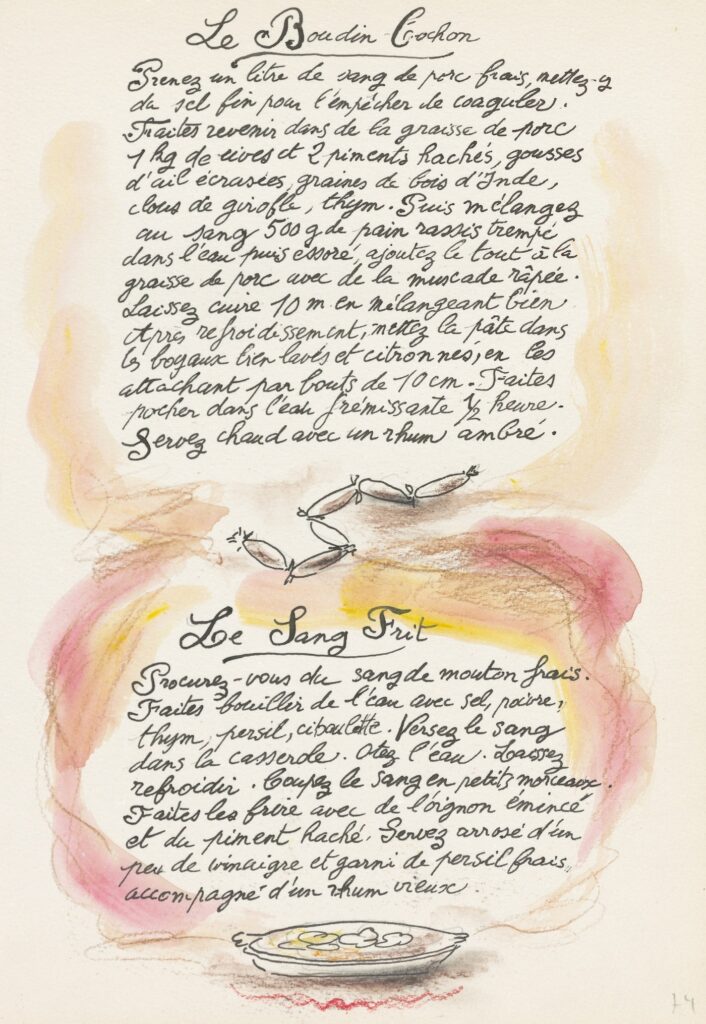 Le Boudin Cochon
Prenez un litre de sang de porc frais, mettez-y
du sel fin pour l'empêcher de coaguler.
Faites revenir dans de la graisse de porc
1 kg de cives et 2 piments hachés, gousses
d'ail écrasées, graines de bois d'Inde,
clous de girofle, thym. Puis mélangez
au sang 500 g de pain rassis trempé
dans l'eau puis essoré, ajoutez le tout à la
graisse de porc avec de la muscade râpée.
Laissez cuire 10 m en mélangeant bien
Après refroidissement, mettez la pâte dans
les boyaux bien lavés et citronnés, en les
attachant par bouts de 10 cm. Faites
pocher dans l'eau frémissante 1/2 heure.
Servez chaud avec un rhum ambré.
Le Sang Frit
Procurez-vous du sang de mouton frais.
Faites bouillir de l'eau avec sel, poivre,
thym, persil, ciboulette. Versez le sang
dans la casserole. Otez l'eau. Laissez
refroidir. Coupez le sang en petits morceaux.
Faites les frire avec de l'oignon émincé
et du piment haché. Servez arrosé d'un
peu de vinaigre et garni de persil frais,
accompagné d'un rhum vieux.
74